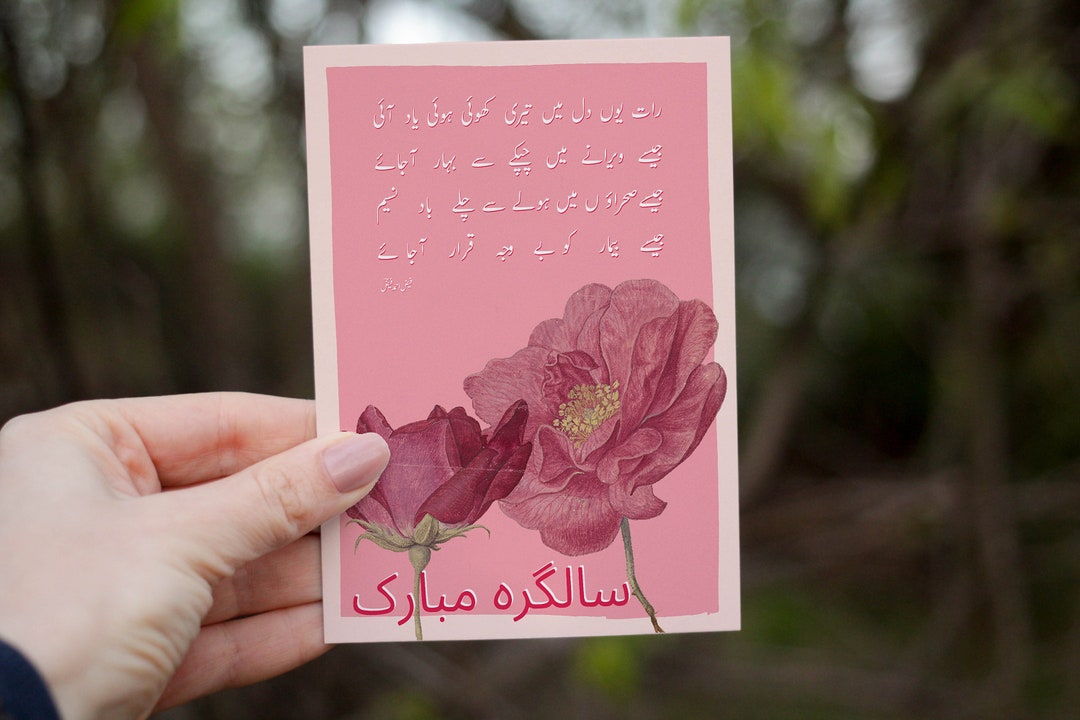 رات یوں دل میں تیری کھوئی ہوئی یاد آئی
جیسے ویرانے میں چپکے سے بہار آجائے
جیسے صحراؤں میں ہولے سے چلے باد نسیم
جیسے بیمار کو بے وجہ قرار آجائے
فیض احمد فیض
سالگرہ مبارک